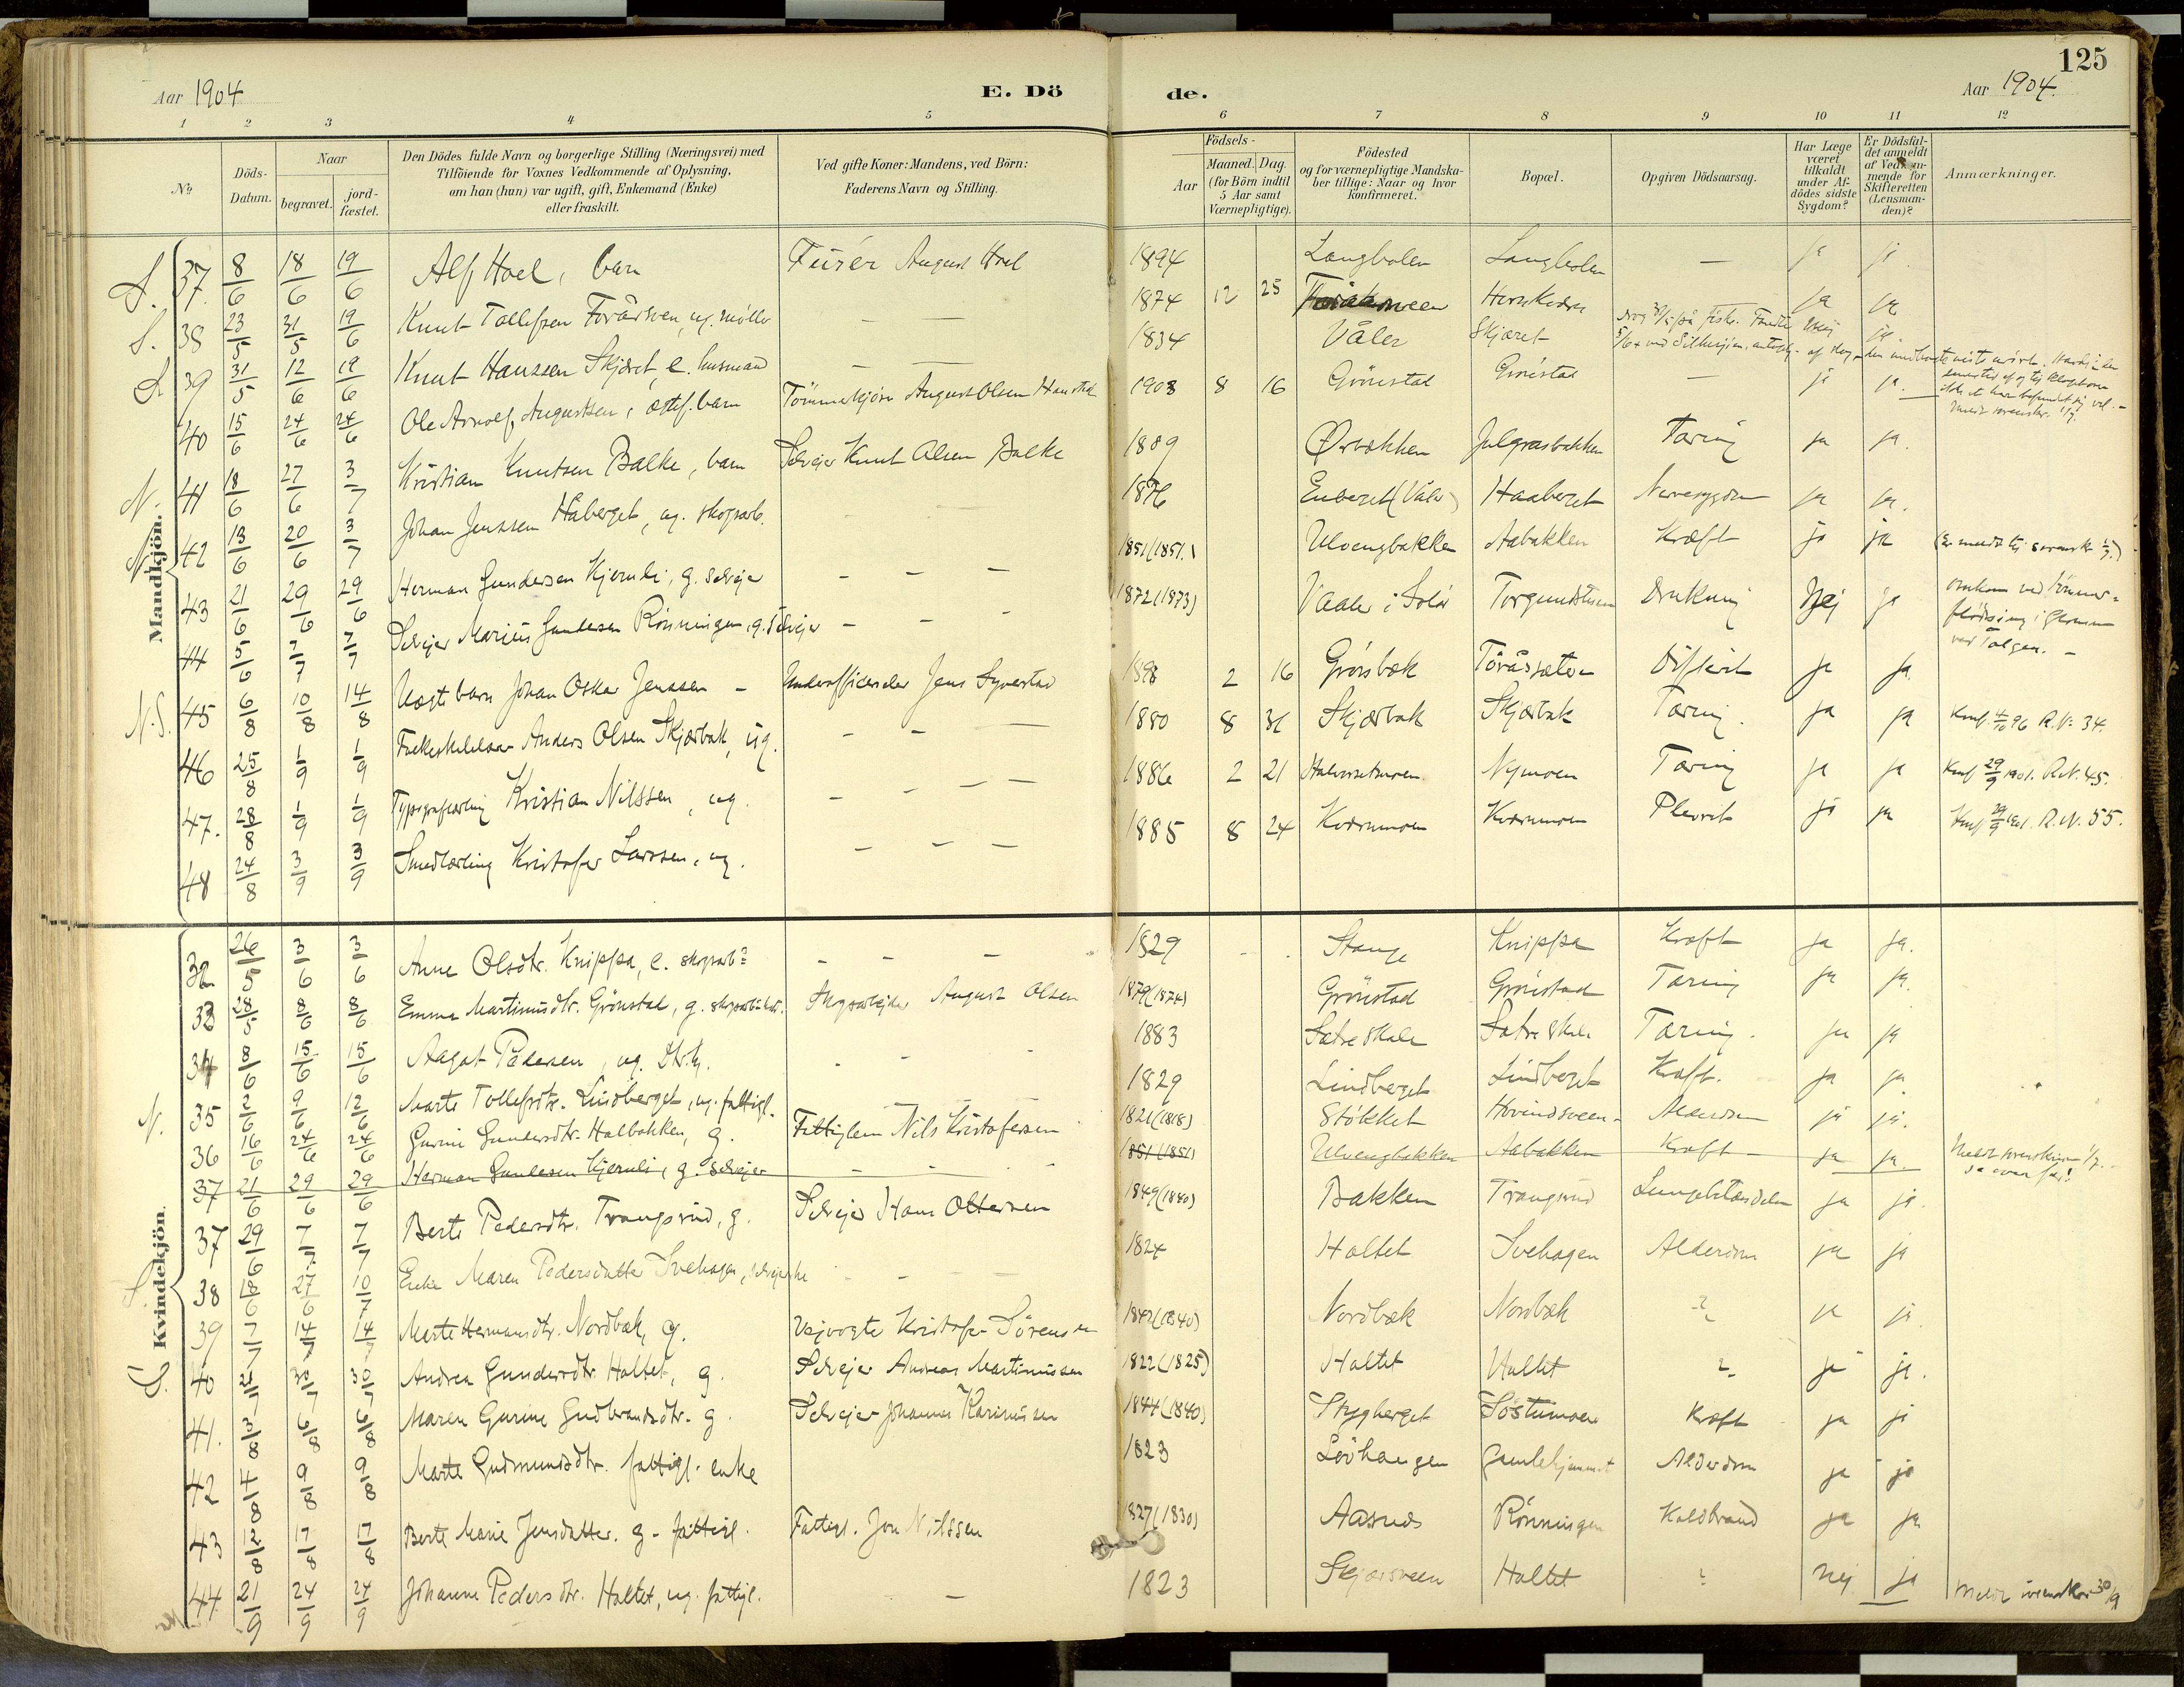 125
Aar 1904
E. Dö
de.
Aar 1904.
1 2 3 4 5 6 7 8 9 10 11 12
No.
Döds-Datum.
Naar
begravet.
jord-fæstet.
Den Dödes fulde Navn og borgerlige Stilling (Næringsvei) med
Tilföiende for Voxnes Vedkommende af Oplysning,
om han (hun) var ugift, gift, Enkemand (Enke)
eller fraskilt.
Ved gifte Koner: Mandens, ved Börn:
Faderens Navn og Stilling.
Födsels-
Aar
Maaned. Dag.
(for Börn indtil
5 Aar samt
Værnepligtige).
Födested
og for værnepligtige Mandska-
ber tillige: Naar og hvor
konfirmeret.
Bopæl.
Opgiven Dödsaarsag.
Har Læge
været
tilkaldt
under Af-
dödes sidste
Sygdom?
Er Dödsfal-
det anmeldt
af Vedkom-
mende for
Skifteretten
(Lensman-
den)?
Anmærkninger.
Mandkjön.
S. 37. 8/6 18/6 19/6 Alf Hoel, barn Furér August Hoel 1894 Langholen Langholen — ja ja.
S. 38 23/5 31/5 19/6 Knut Tollefsen Foråsveen, ug. møller — — 1874 12 25 ja ja
S. 39 31/5 12/6 19/6 Knut Hanssen Skjæret, e. husmand — — 1834 Våler Skjæret ja
40 15/6 24/6 24/6 Ole Arnolf Augustsen, ægtef. barn August Olsen 1903 8 16 Grönstad Grönstad — ja ja.
N. 41 18/6 27/6 3/7 Kristian Knutsen Balke, barn Selvejer Knut Olsen Balke 1889 Ørbekken Julgrasbakken Tæring ja ja.
N. 42 13/6 20/6 3/7 Johan Jenssen Håberget, ug. skogsarb. — — — 1876 Enberget (Våler) Haaberget Nervesygdom ja ja.
43 21/6 29/6 29/6 Herman Gundersen Kjernli, g. selvejer — — — 1851 (1851.) Ulvengbakken Aabakken Kræft ja ja
44 5/6 7/7 7/7 Selvejer Marius Gundersen Rönningen, g. selvejer — — — 1872 (1873) Vaaler i Solör Drukning Nej ja omkom ved tömmer=
flödsning i Glommen
ved Tolgen. —
N.S. 45 6/8 10/8 14/8 Uægte barn Johan Oskar Jenssen — Underofficerselev Jens Syverstad 1898 2 16 Grönsbæk Toråssæter Difterit ja ja
46 25/8 1/9 1/9 Anders Olsen Skjærbæk, ug. — — — 1880 8 31 Skjærbæk Skjærbæk Tæring. ja ja Konf. 4/10 96 R. N. 34.
47. 28/8 1/9 1/9 Typograflærling Kristian Nilssen, ug. — — — — 1886 2 21 Halvorsetmoen Nymoen Tæring ja ja Konf 29/9 1901. R. N. 45.
48 24/8 3/9 3/9 Smedlærling Kristofer Larssen, ug. — — — 1885 8 24 Kværnmoen Kværnmoen Plevrit ja ja Konf 29/9 1901. R. N. 55.
Kvindekjön.
32 26/5 3/6 3/6 Anne Olsdtr. Knippa, e. skogsarb. — — — 1829 Stange Knippa Kræft ja ja.
33 28/5 8/6 8/6 Emma Martinusdtr. Grönstad, g. Skogsarbejder August Olsen 1879 (1874) Grönstad Grönstad Tæring ja ja.
34 8/6 15/6 15/6 Aagot Pedersen, ug. — — 1883 Sætre skole Sætre skole Tæring. ja ja
N. 35 2/6 9/6 12/6 Marte Tollefsdtr. Lindberget, ug. fattigl. — — 1829 Lindberget Lindberget Kræft. ja ja.
36 16/6 24/6 24/6 Gurine Gundersdtr. Halbakken, g. Fattiglem Nils Kristofersen 1821 (1818) Stökket Hovindsveen Alderdom ja ja.
37 21/6 29/6 29/6 Herman Gundersen Kjernli, g. selvejer — — 1851 (1851) Ulvengbakken Aabakken Kræft ja ja.
37 29/6 7/7 7/7 Berte Pedersdtr. Trangsrud, g. Selvejer Hans Ottersen 1849 (1840) Bakken Trangsrud Lungebetændelse ja ja.
S. 38 18/6 27/6 10/7 Enke Maren Pedersdatter Svehagen, selvejerske — — 1824 Holtet Svehagen Alderdom ja ja
39 7/7 14/7 14/7 Marte Hermansdtr. Nordbæk, g. Vejvogter Kristofer Sörensen 1842 (1840) Nordbæk Nordbæk ? ja ja.
S. 40 21/7 30/7 30/7 Andrea Gundersdtr. Holtet, g. Selvejer Andreas Martinussen 1822 (1825) Holtet Holtet ? ja ja.
41. 3/8 6/8 6/8 Maren Gurine Gudbrandsdtr. g. Selvejer Johannes Karinussen 1844 (1840) Stygberget Sostumoen Kræft ja ja
42 4/8 9/8 9/8 Marte Gudmundsdtr. fattigl. enke 1823 Lövhaugen Gamlehjemmet Alderdom ja ja
43 12/8 17/8 17/8 Berte Marie Jensdatter. g. fattigl. Fattigl. Jon Nilssen 1827 (1830) Aasnes Rönningen Koldbrand ja ja
44. 21/9 24/9 24/9 Johanne Pedersdtr. Holtet, ug. fattigl. — 1823 Skjæraasen Holtet ? nej ja 30/9